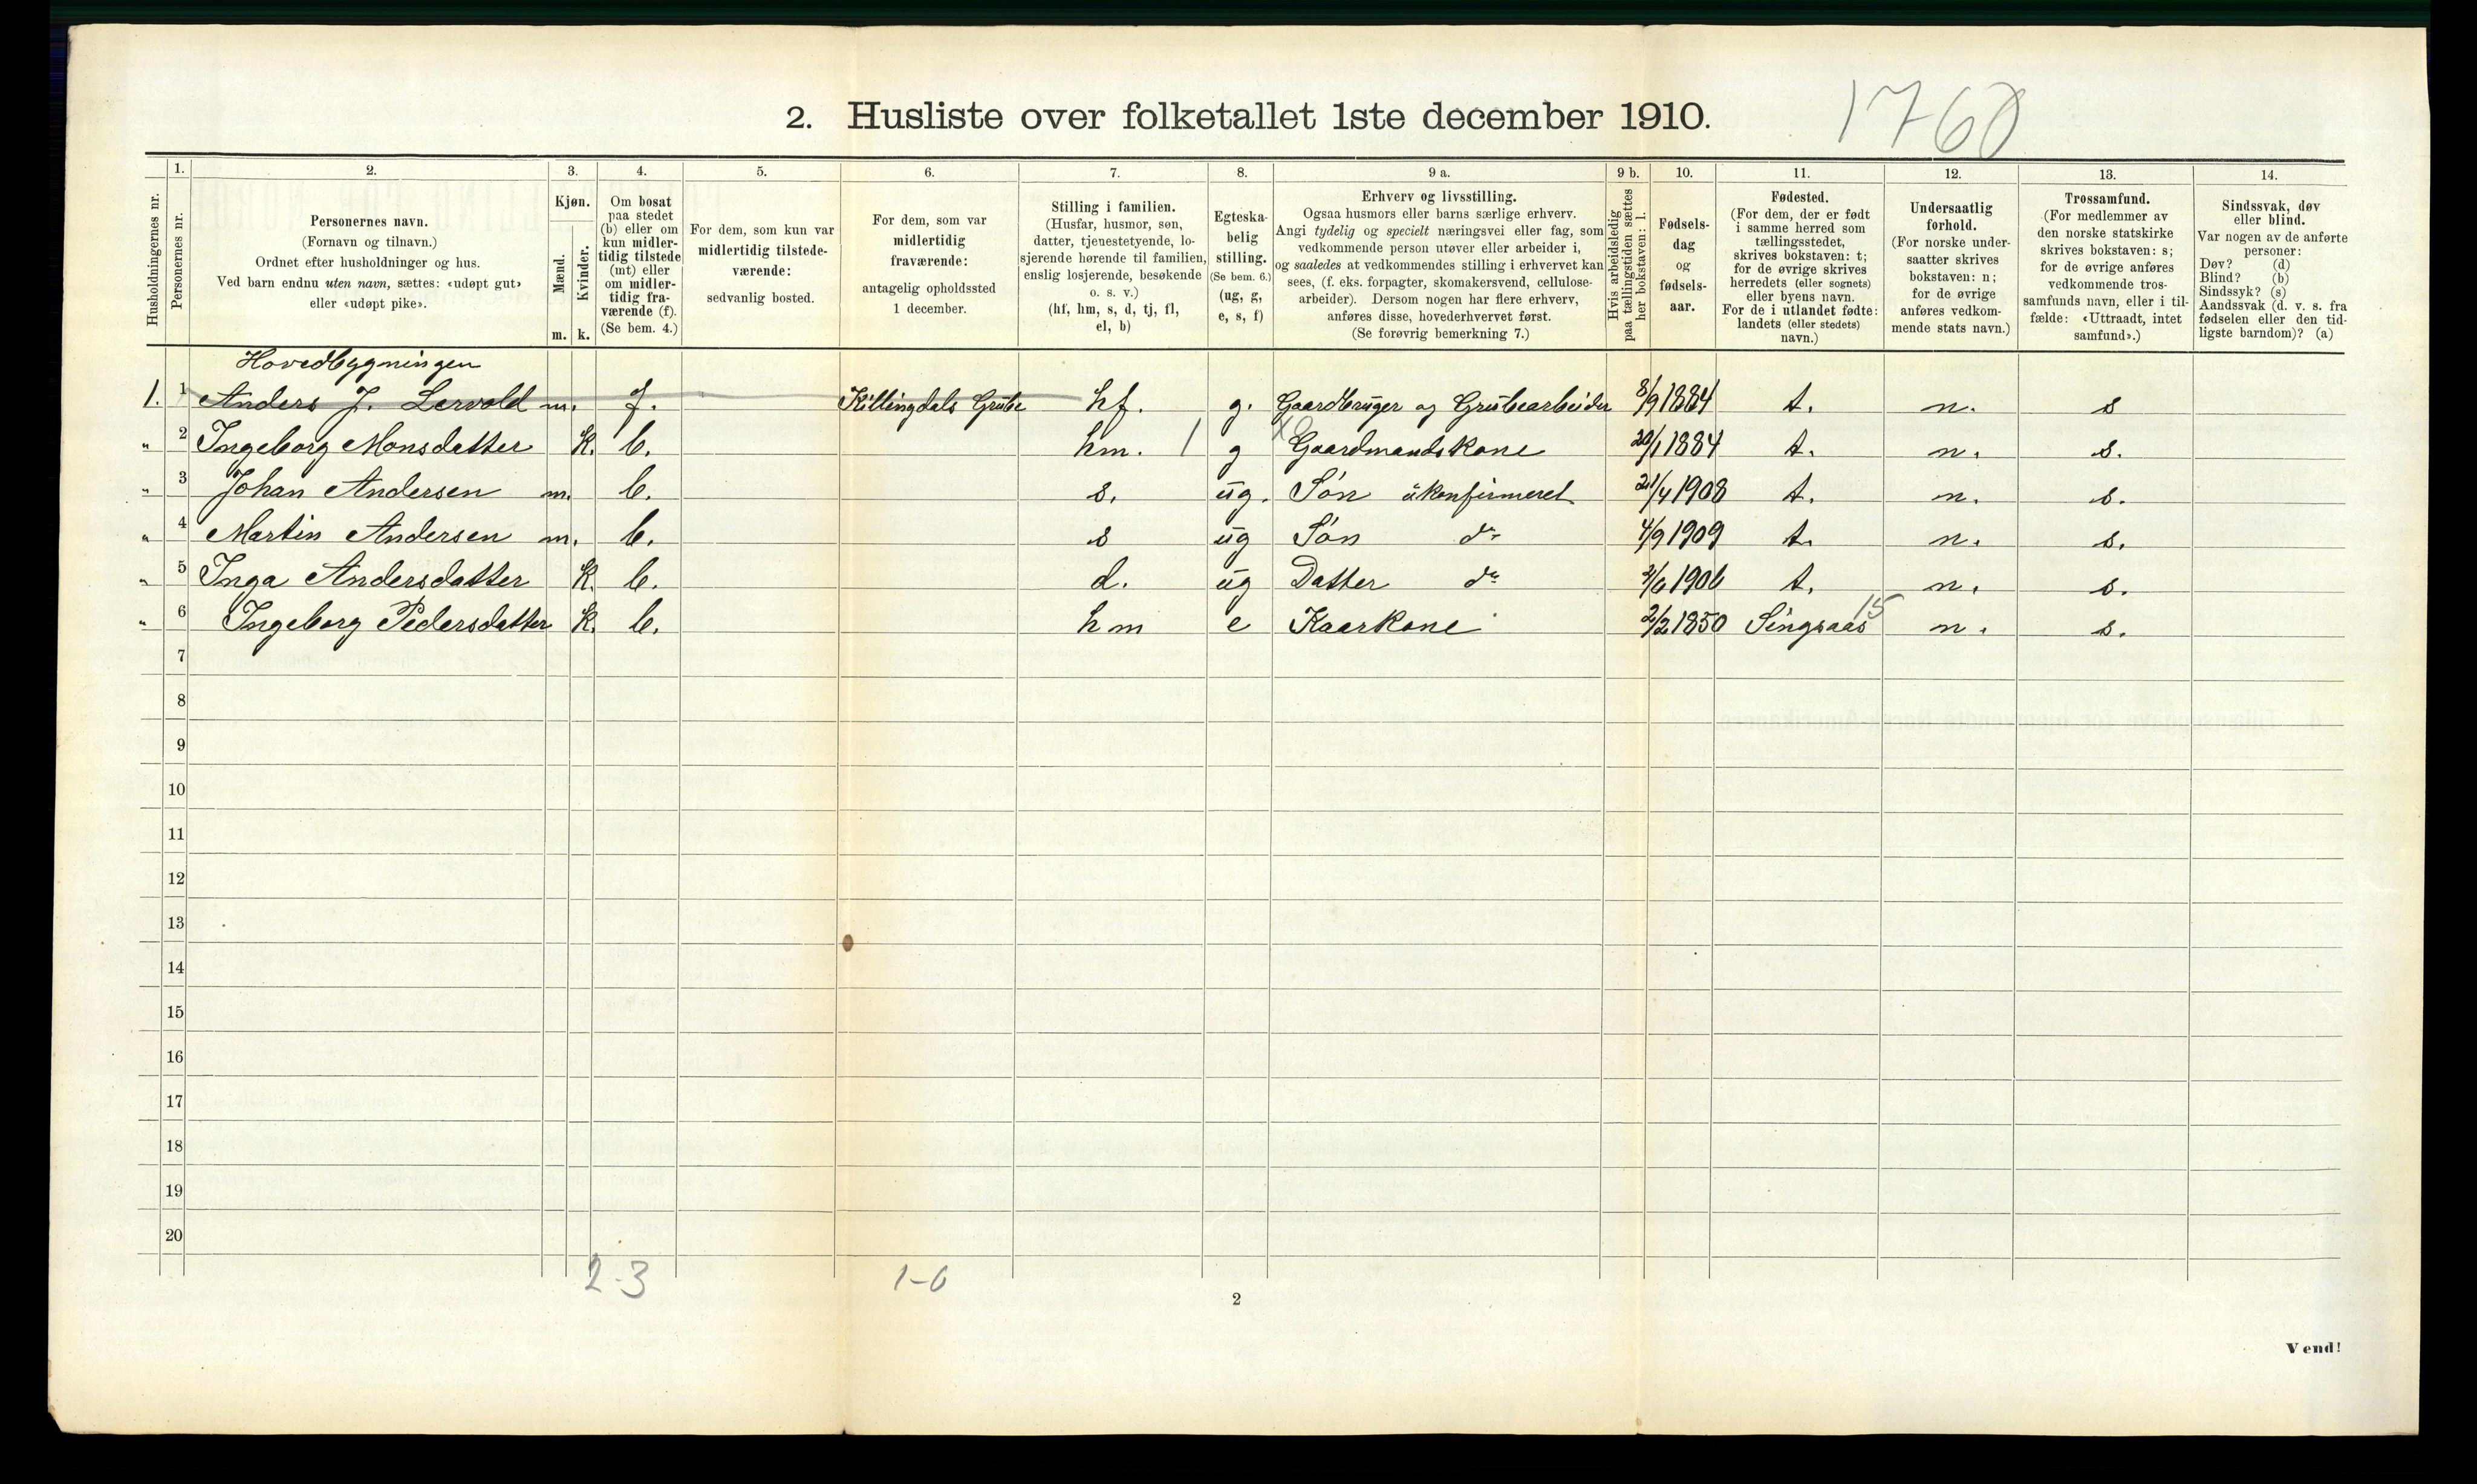 2. Husliste over folketallet 1ste december 1910.
1760
Husholdningernes nr.
1.
Personernes nr.
2.
Personernes navn.
(Fornavn og tilnavn.)
Ordnet efter husholdninger og hus.
Ved barn endnu uten navn, sættes: «udøpt gut»
eller «udøpt pike».
3.
Kjøn.
Mænd.
Kvinder.
m. k.
4.
Om bosat
paa stedet
(b) eller om
kun midler-
tidig tilstede
(mt) eller
om midler-
tidig fra-
værende (f).
(Se bem. 4.)
5.
For dem, som kun var
midlertidig tilstede-
værende:
sedvanlig bosted.
6.
For dem, som var
midlertidig
fraværende:
antagelig opholdssted
1 december.
7.
Stilling i familien.
(Husfar, husmor, søn,
datter, tjenestetyende, lo-
sjerende hørende til familien,
enslig losjerende, besøkende
o. s. v.)
(hf, hm, s, d, tj, fl,
el, b)
8.
Egteska-
belig
stilling.
(Se bem. 6.)
(ug, g,
e, s, f)
9 a.
Erhverv og livsstilling.
Ogsaa husmors eller barns særlige erhverv.
Angi tydelig og specielt næringsvei eller fag, som
vedkommende person utøver eller arbeider i,
og saaledes at vedkommendes stilling i erhvervet kan
sees, (f. eks. forpagter, skomakersvend, cellulose-
arbeider). Dersom nogen har flere erhverv,
anføres disse, hovederhvervet først.
(Se forøvrig bemerkning 7.)
9 b.
Hvis arbeidsledig
paa tællingstiden sættes
her bokstaven: l.
10.
Fødsels-
dag
og
fødsels-
aar.
11.
Fødested.
(For dem, der er født
i samme herred som
tællingsstedet,
skrives bokstaven: t;
for de øvrige skrives
herredets (eller sognets)
eller byens navn.
For de i utlandet fødte:
landets (eller stedets)
navn.)
12.
Undersaatlig
forhold.
(For norske under-
saatter skrives
bokstaven: n;
for de øvrige
anføres vedkom-
mende stats navn.)
13.
Trossamfund.
(For medlemmer av
den norske statskirke
skrives bokstaven: s;
for de øvrige anføres
vedkommende tros-
samfunds navn, eller i til-
fælde: «Uttraadt, intet
samfund».)
14.
Sindssvak, døv
eller blind.
Var nogen av de anførte
personer:
Døv? (d)
Blind? (b)
Sindssyk? (s)
Aandssvak (d. v. s. fra
fødselen eller den tid-
ligste barndom)? (a)
Hovedbygningen
1. 1 Anders J. Lervold m. f. Killingdals Grube hf. g. Gaardbruger og Grubearbeider 8/9 1884 t. n. s
" 2 Ingeborg Monsdatter k. b. hm. 1 g Gaardmandskone 20/1 1884 t. n. s.
" 3 Johan Andersen m. b. s. ug. Søn ukonfirmeret 21/4 1908 t. n. s.
" 4 Martin Andersen m. b. s ug Søn do 4/9 1909 t. n. s.
" 5 Inga Andersdatter k. b. d. ug Datter do 2/6 1906 t. n. s.
" 6 Ingeborg Pedersdatter k. b. hm e Kaarkone 2/2 1850 Singsaas 15 n. s.
7
8
9
10
11
12
13
14
15
16
17
18
19
20
2-3 1-0
2
Vend!